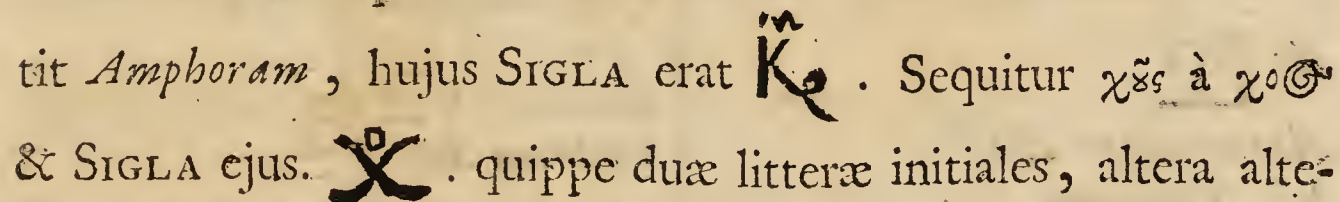 tit Amphoram, hujus SIGLA erat . Sequitur χȣ͂ς à χοος
& SIGLA ejus. . quippe duæ litteræ initiales, altera alte-